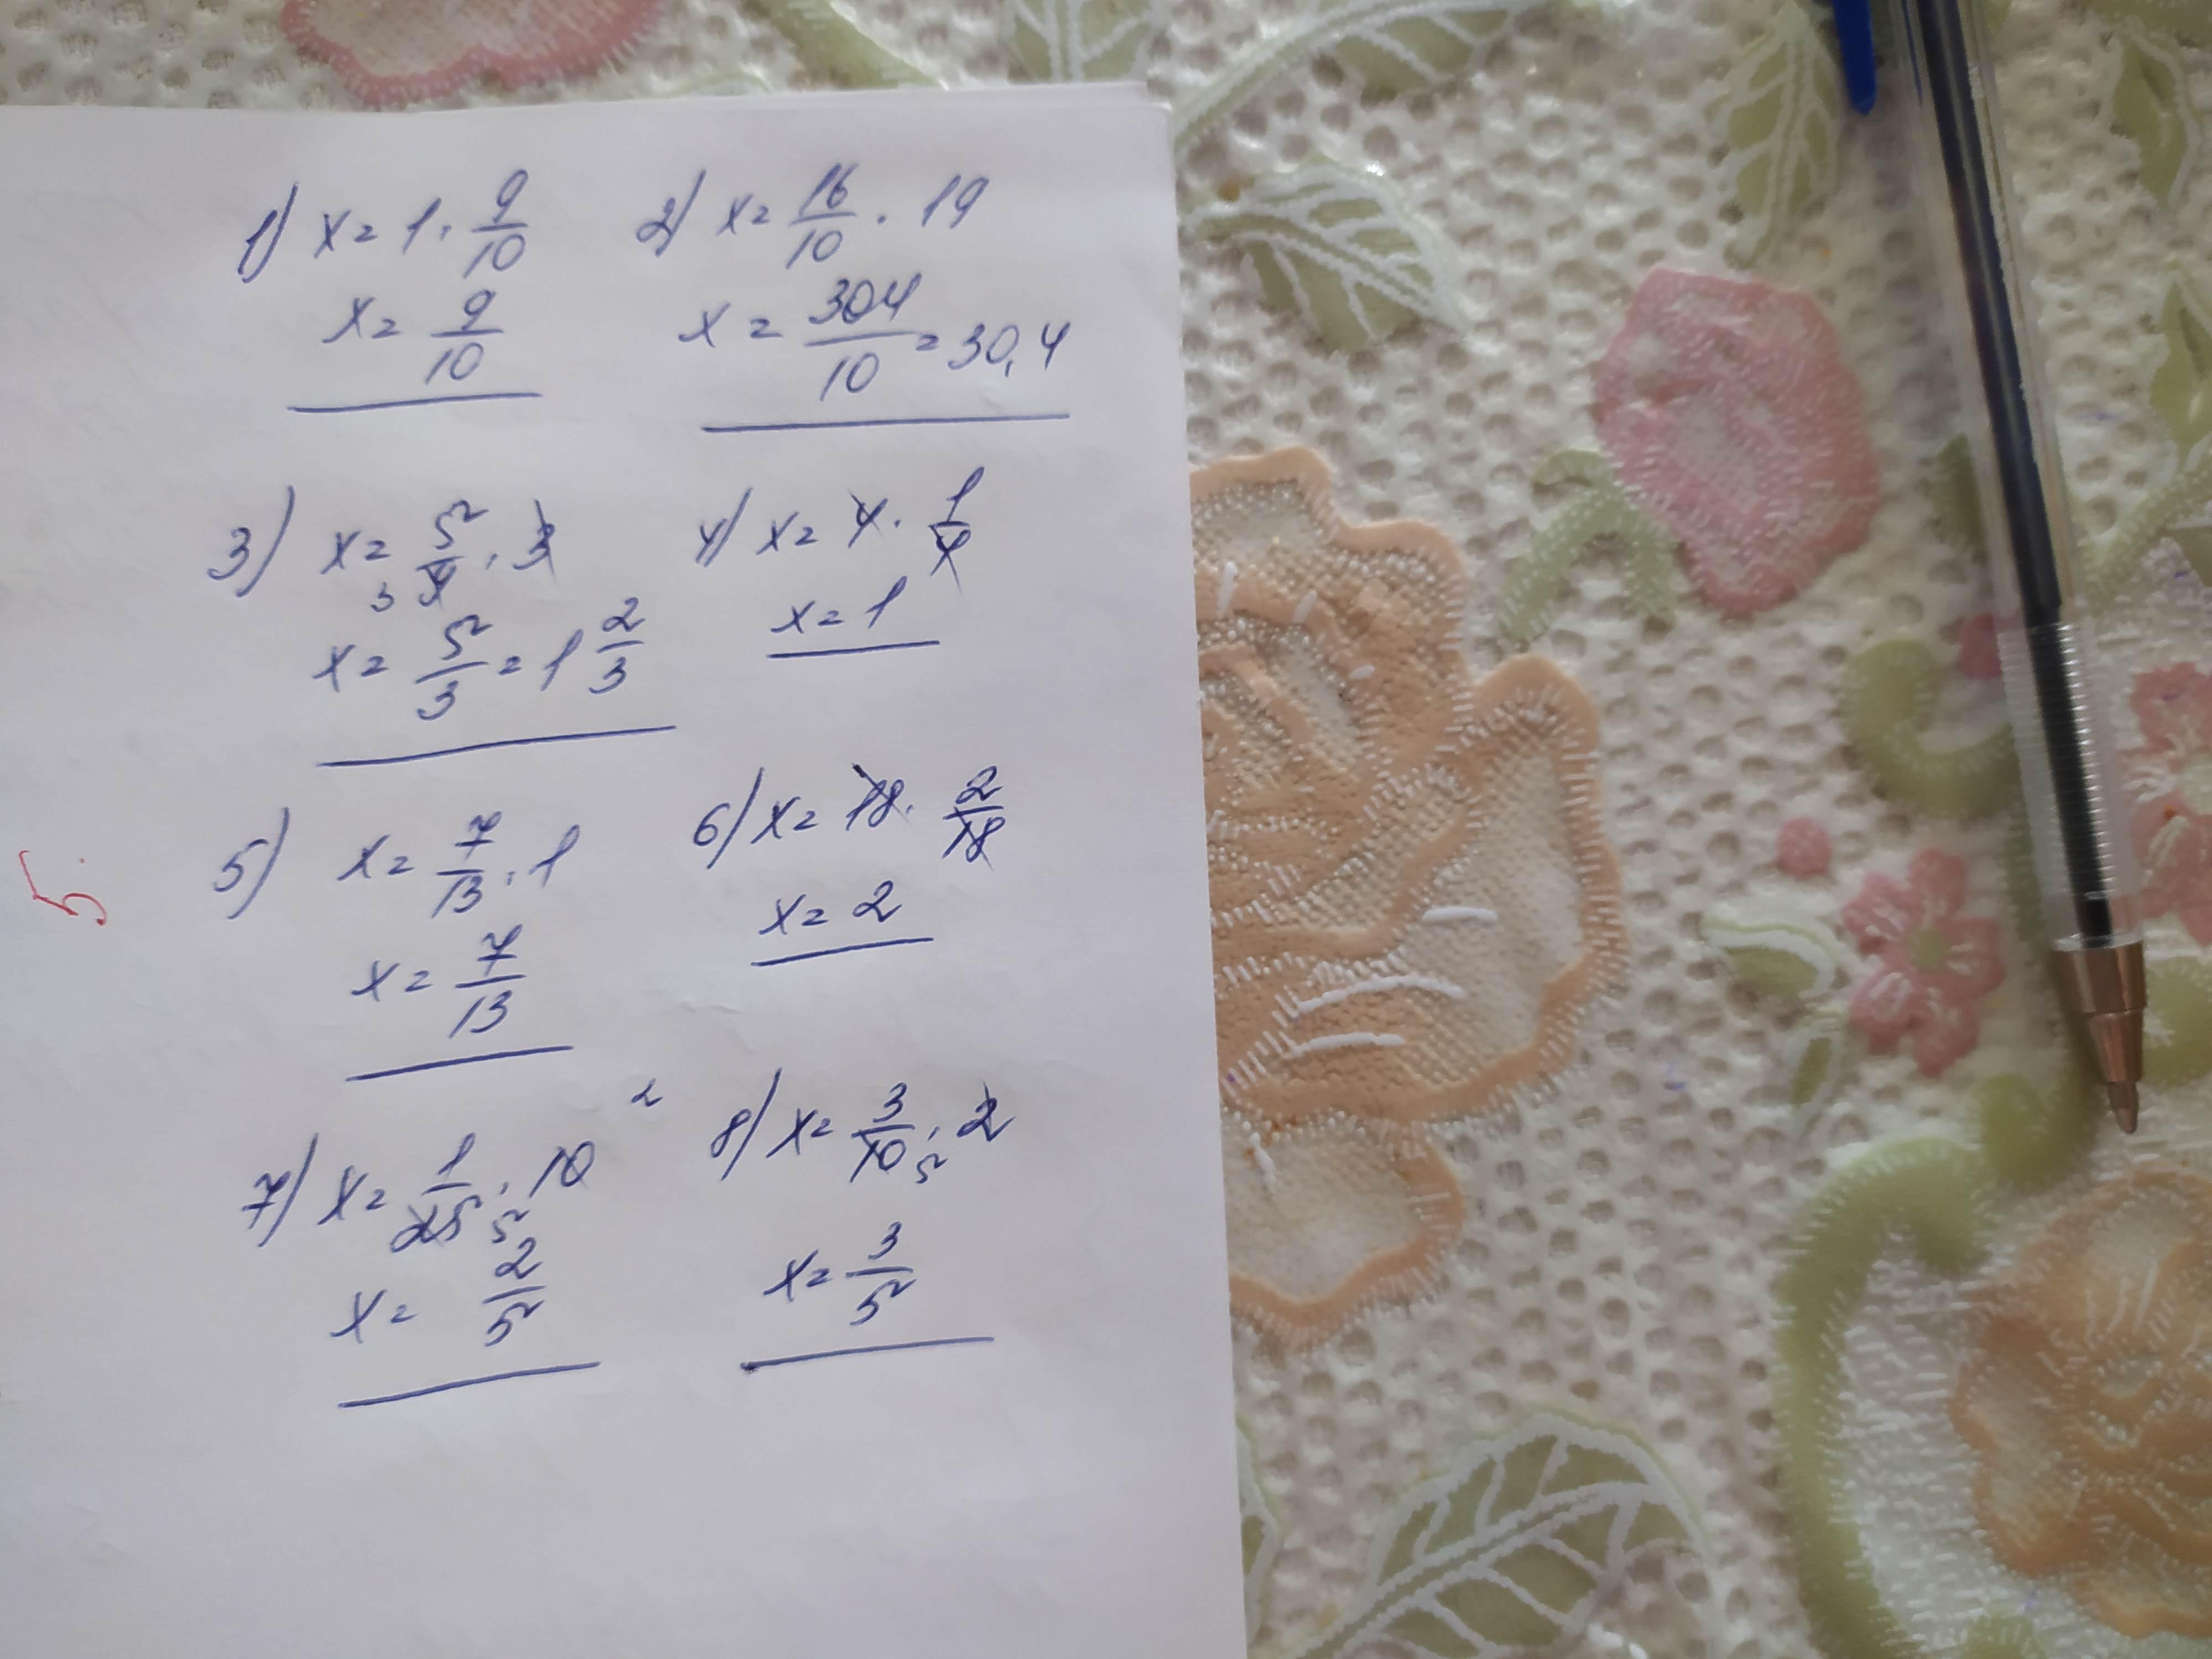 1) x = 1 · 9/10
x = 9/10
2) x = 16/10 · 19
x = 304/10 = 30,4
3) x = 5/9 · 3
3
x = 5/3 = 1 2/3
4) x = 4 · 1/4
x = 1
5.
5) x = 7/13 · 1
x = 7/13
6) x = 18 · 2/18
x = 2
7) x = 1/25 · 10
2
5
x = 2/5
8) x = 3/10 · 2
5
x = 3/5